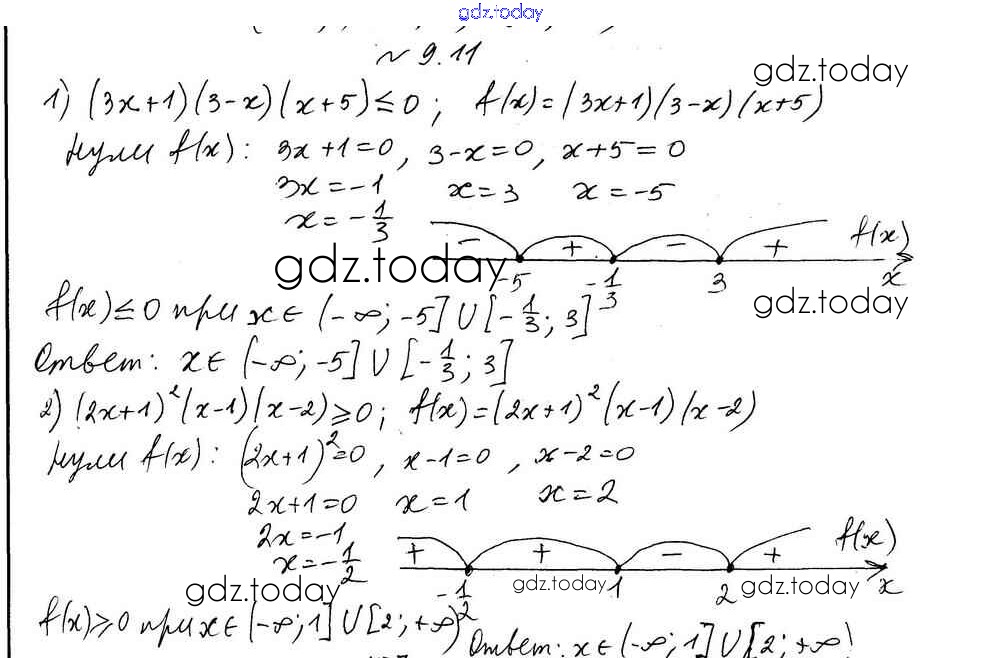 gdz.today
№ 9.11
gdz.today
1) (3x+1)(3-x)(x+5)≤0; f(x)=(3x+1)(3-x)(x+5)
Нули f(x): 3x+1=0, 3-x=0, x+5=0
3x=-1 x=3 x=-5
x=-1/3
- + - + f(x)
gdz.today
-5 -1/3 3 x
gdz.today
f(x)≤0 при x∈(-∞;-5]∪[-1/3;3]
Ответ: x∈(-∞;-5]∪[-1/3;3]
2) (2x+1)²(x-1)(x-2)≥0; f(x)=(2x+1)²(x-1)(x-2)
Нули f(x): (2x+1)²=0, x-1=0, x-2=0
2x+1=0 x=1 x=2
2x=-1
x=-1/2
+ + - + f(x)
-1/2 1 2 x
gdz.today gdz.today gdz.today
f(x)≥0 при x∈(-∞;1]∪[2;+∞)
Ответ: x∈(-∞;1]∪[2;+∞)